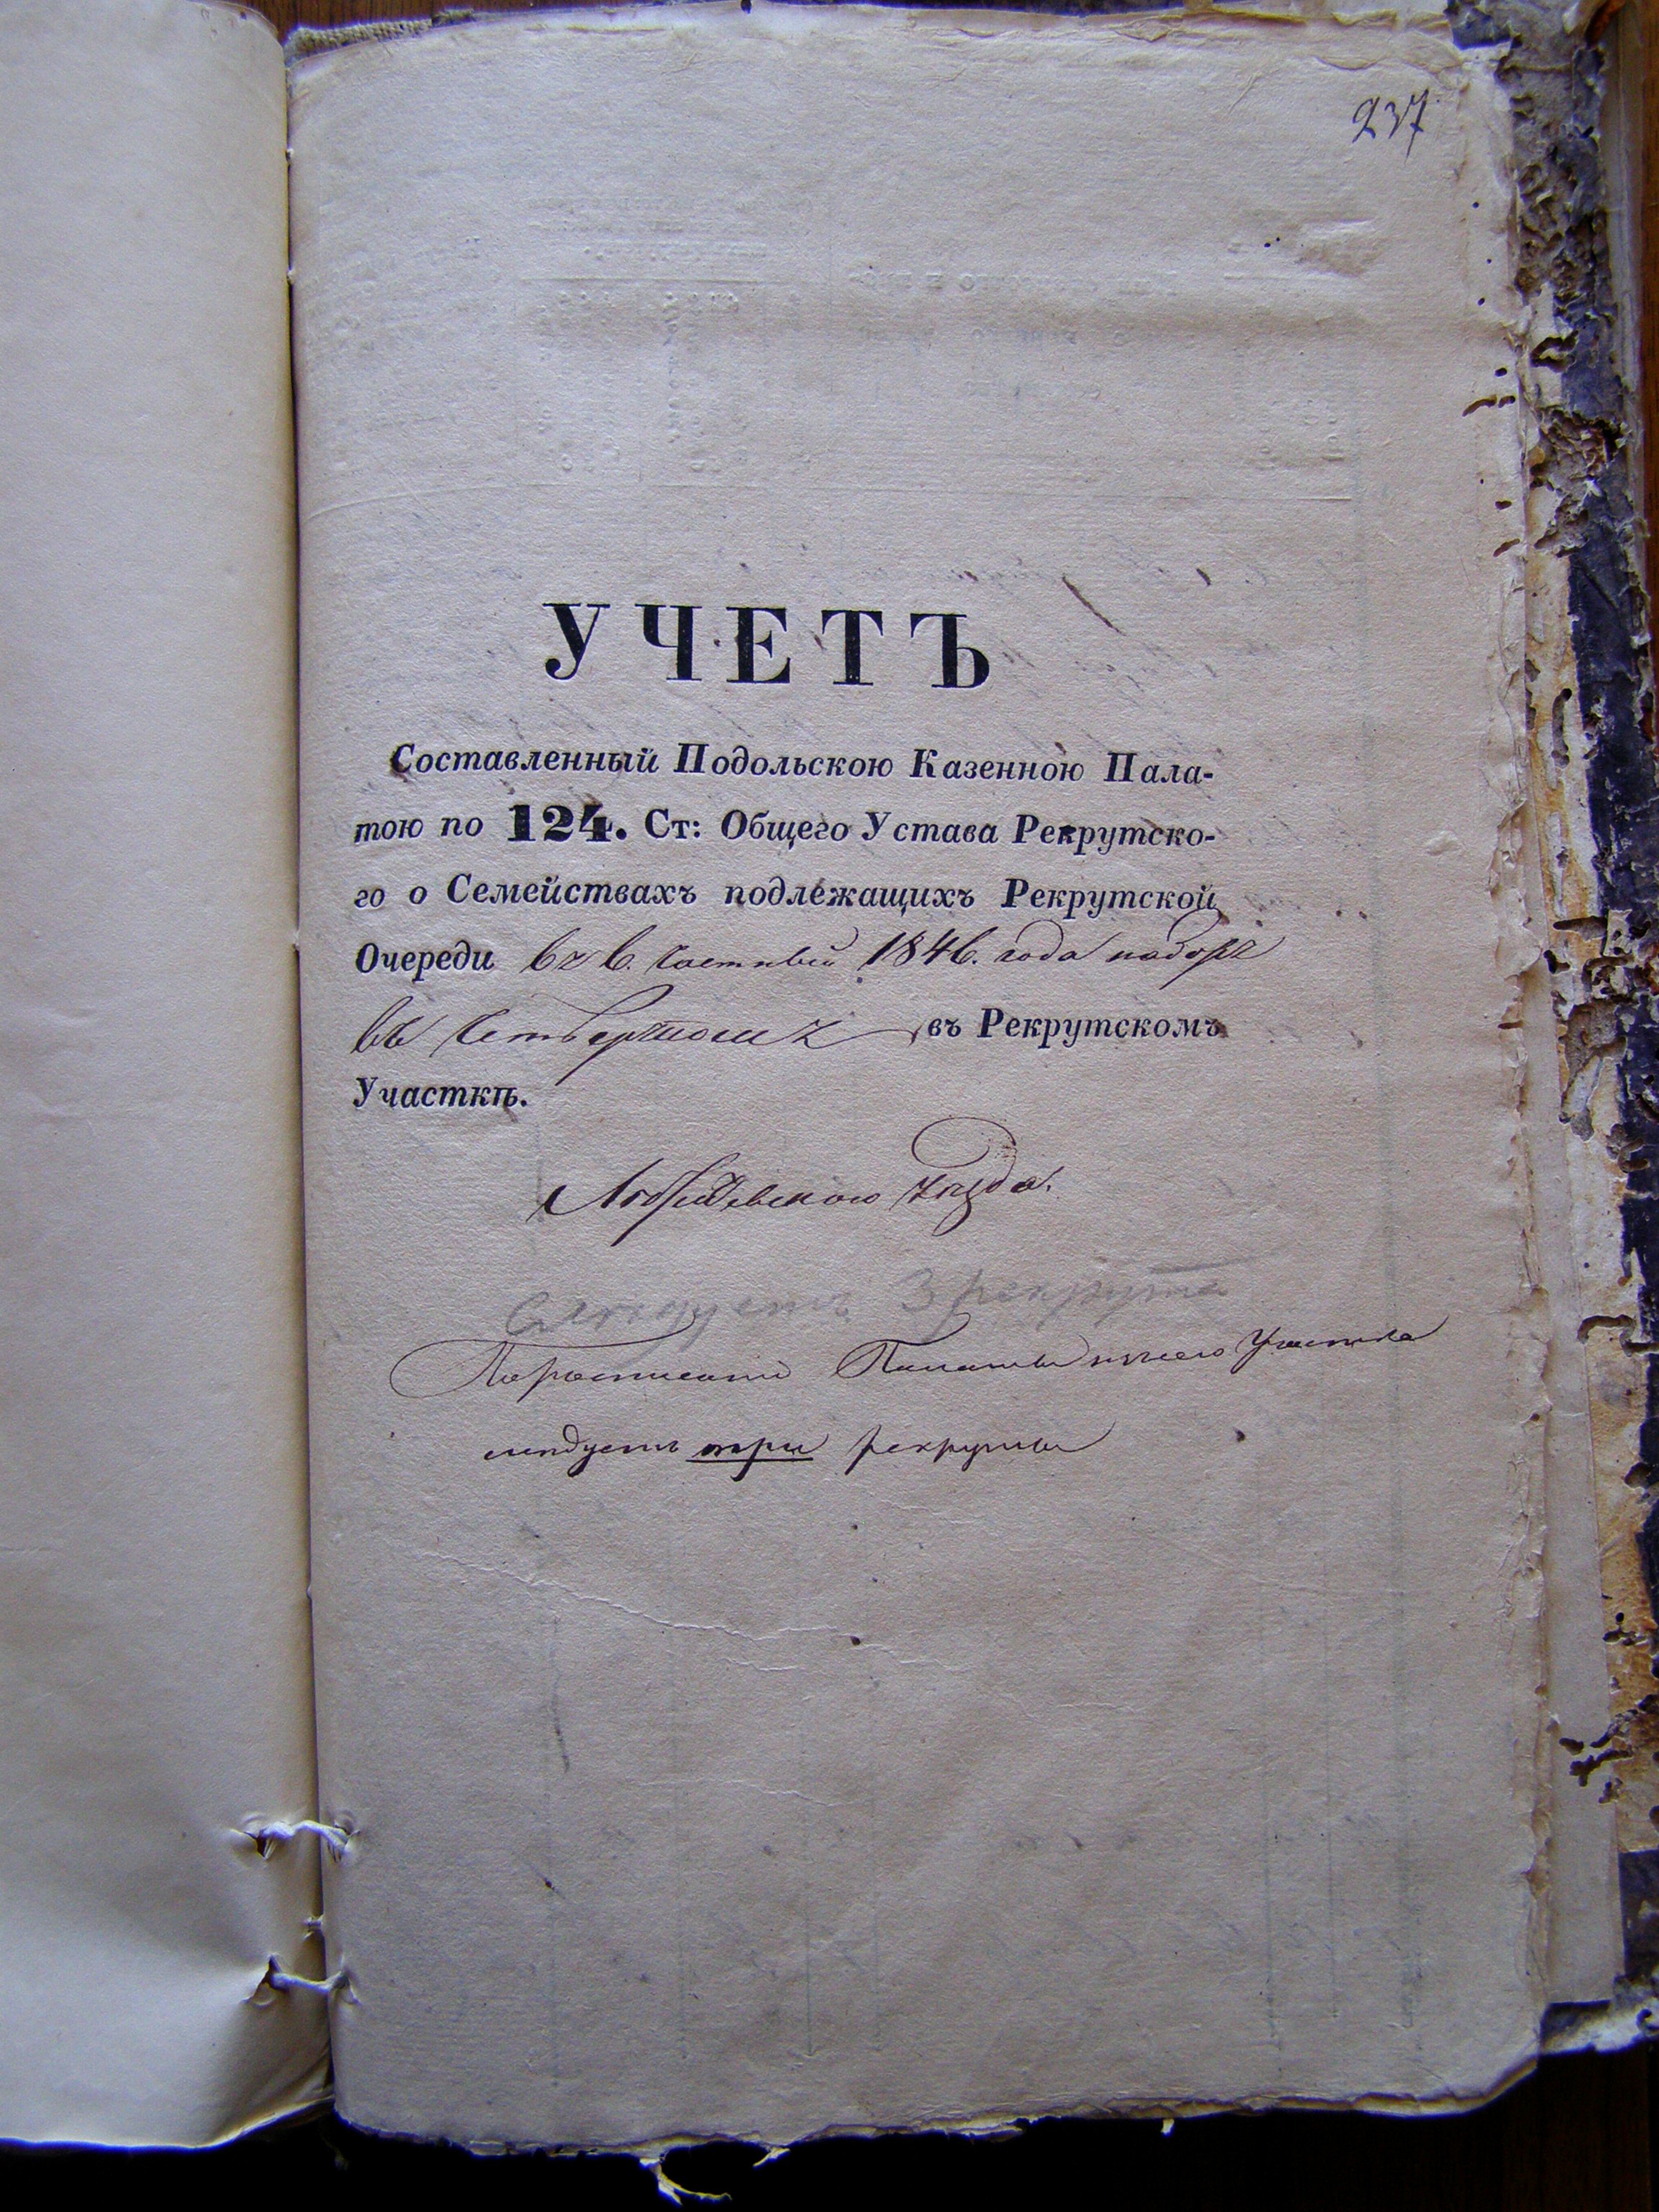 237
УЧЕТЪ
Составленный Подольскою Казенною Пала-
тою по 124. Ст: Общего Устава Рекрутско-
го о Семействахъ подлежащихъ Рекрутской
Очереди въ 6. частный 1846. года наборъ
въ Четвертомъ въ Рекрутскомъ
Участкѣ.
Уѣзда.
Слѣдуетъ 3 рекрута
По росписанію Палаты Участка
слѣдуетъ три рекруты